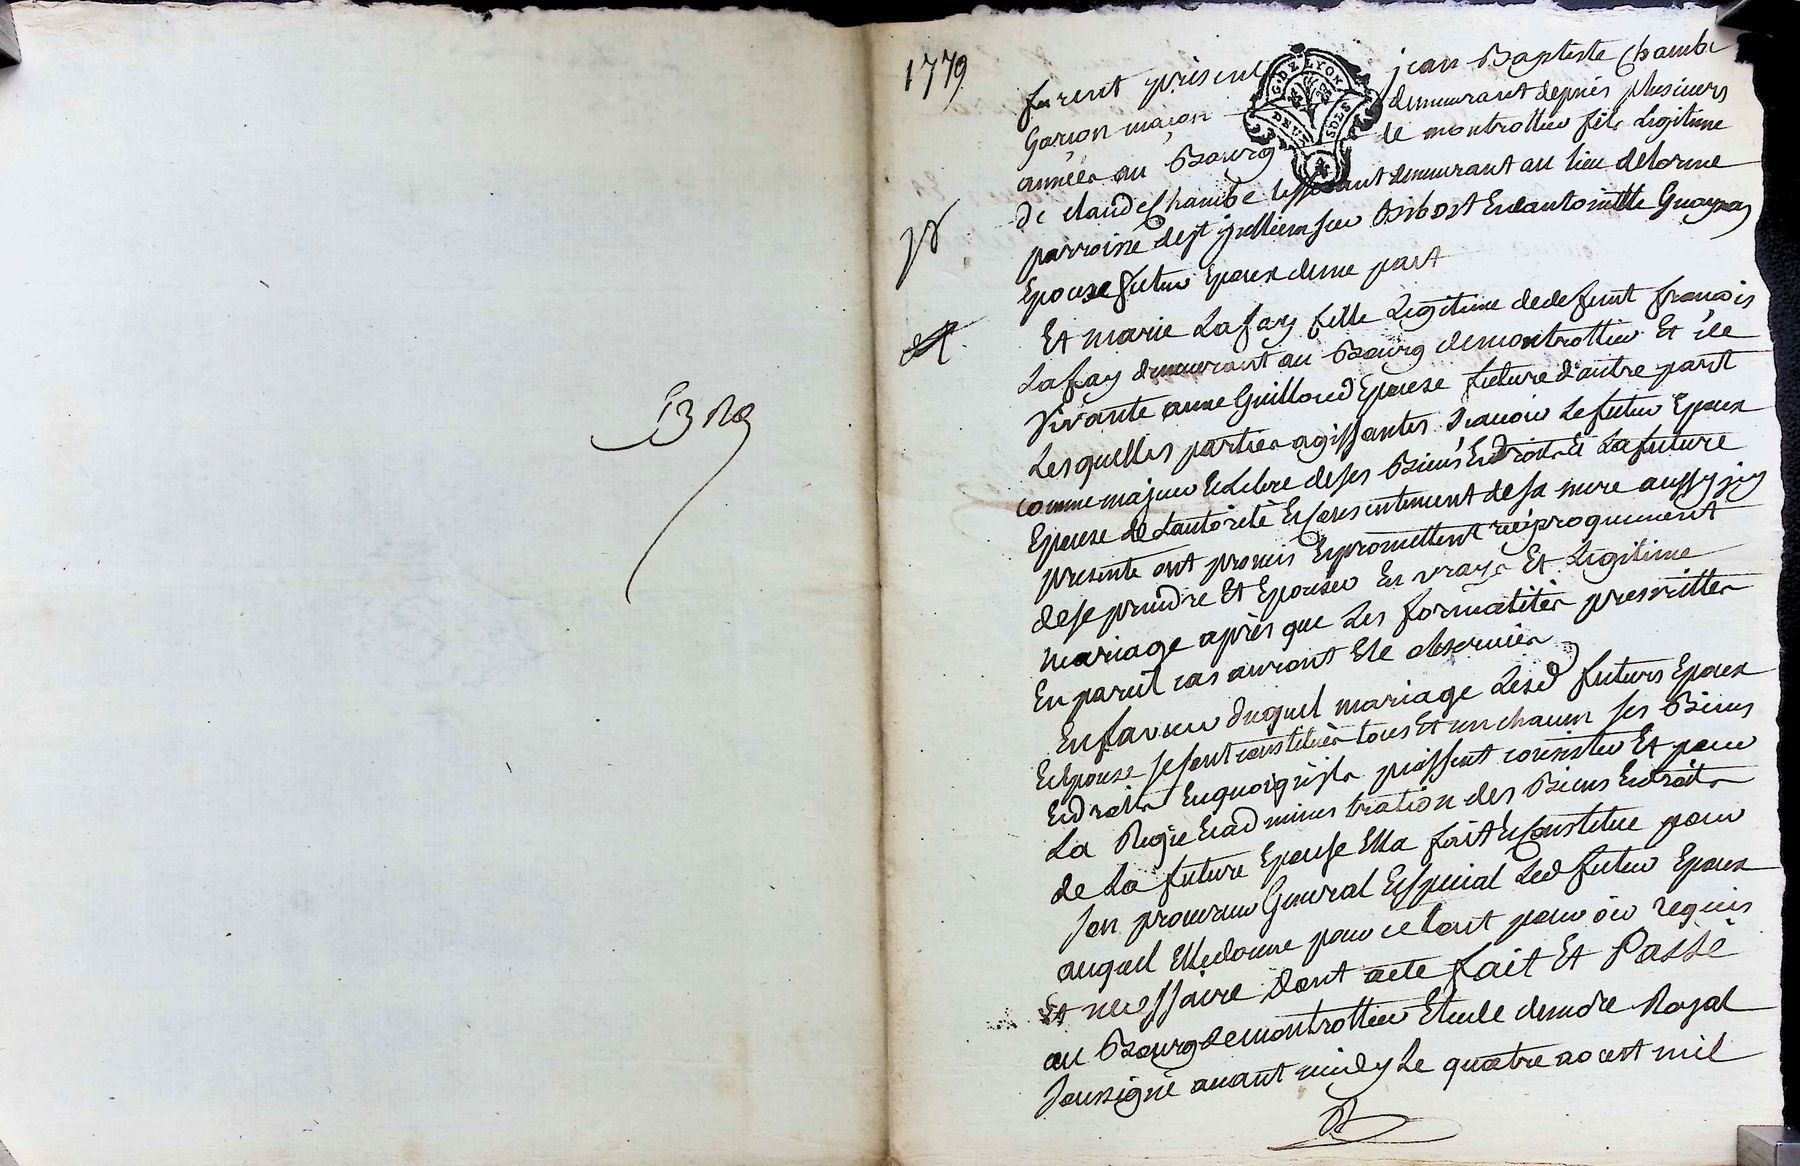 1779
G. DE LYON
DEUX SOLS
furent présent jean Baptiste Chambe
Garçon maçon demeurant depuis plusieurs
années au Bourg de montrottier fils Legitime
de claude Chambe demeurant au lieu delorme
parroisse de st jullien sur Bibost Et dantoinette Guoynon
Epouse futur Epoux dune part
Et marie Lafay fille Legitime de defunt françois
Lafay demeurant au Bourg demontrottier Et de
vivante anne Guilloud Epouse future d'autre part
Lesquelles parties agissantes sçavoir Le futur Epoux
comme majeur Et Libre deses Biens Et droits Et La future
Epouse de Lautorité Et consentement de sa mere aussy icy
presente ont promis Et promettent reciproquement
de se prendre Et Epouser En vray Et Legitime
mariage après que Les formalités prescrittes
En pareil cas auront Eté observées
En faveur duquel mariage Lesd futurs Epoux
Et Epouse se sont constitués tous Et un chacun ses Biens
Et droits En quoiqu'ils puissent consister Et pour
La Regie Et administration des Biens Et droits
de La future Epouse Ella fait Et constitue pour
son procureur General Et special Led futur Epoux
auquel Elle donne pour ce tout pouvoir requis
Et necessaire Dont acte fait Et Passé
au Bourg de montrottier Etude de no.re Royal
soussigné avant midy Le quatre aoust mil